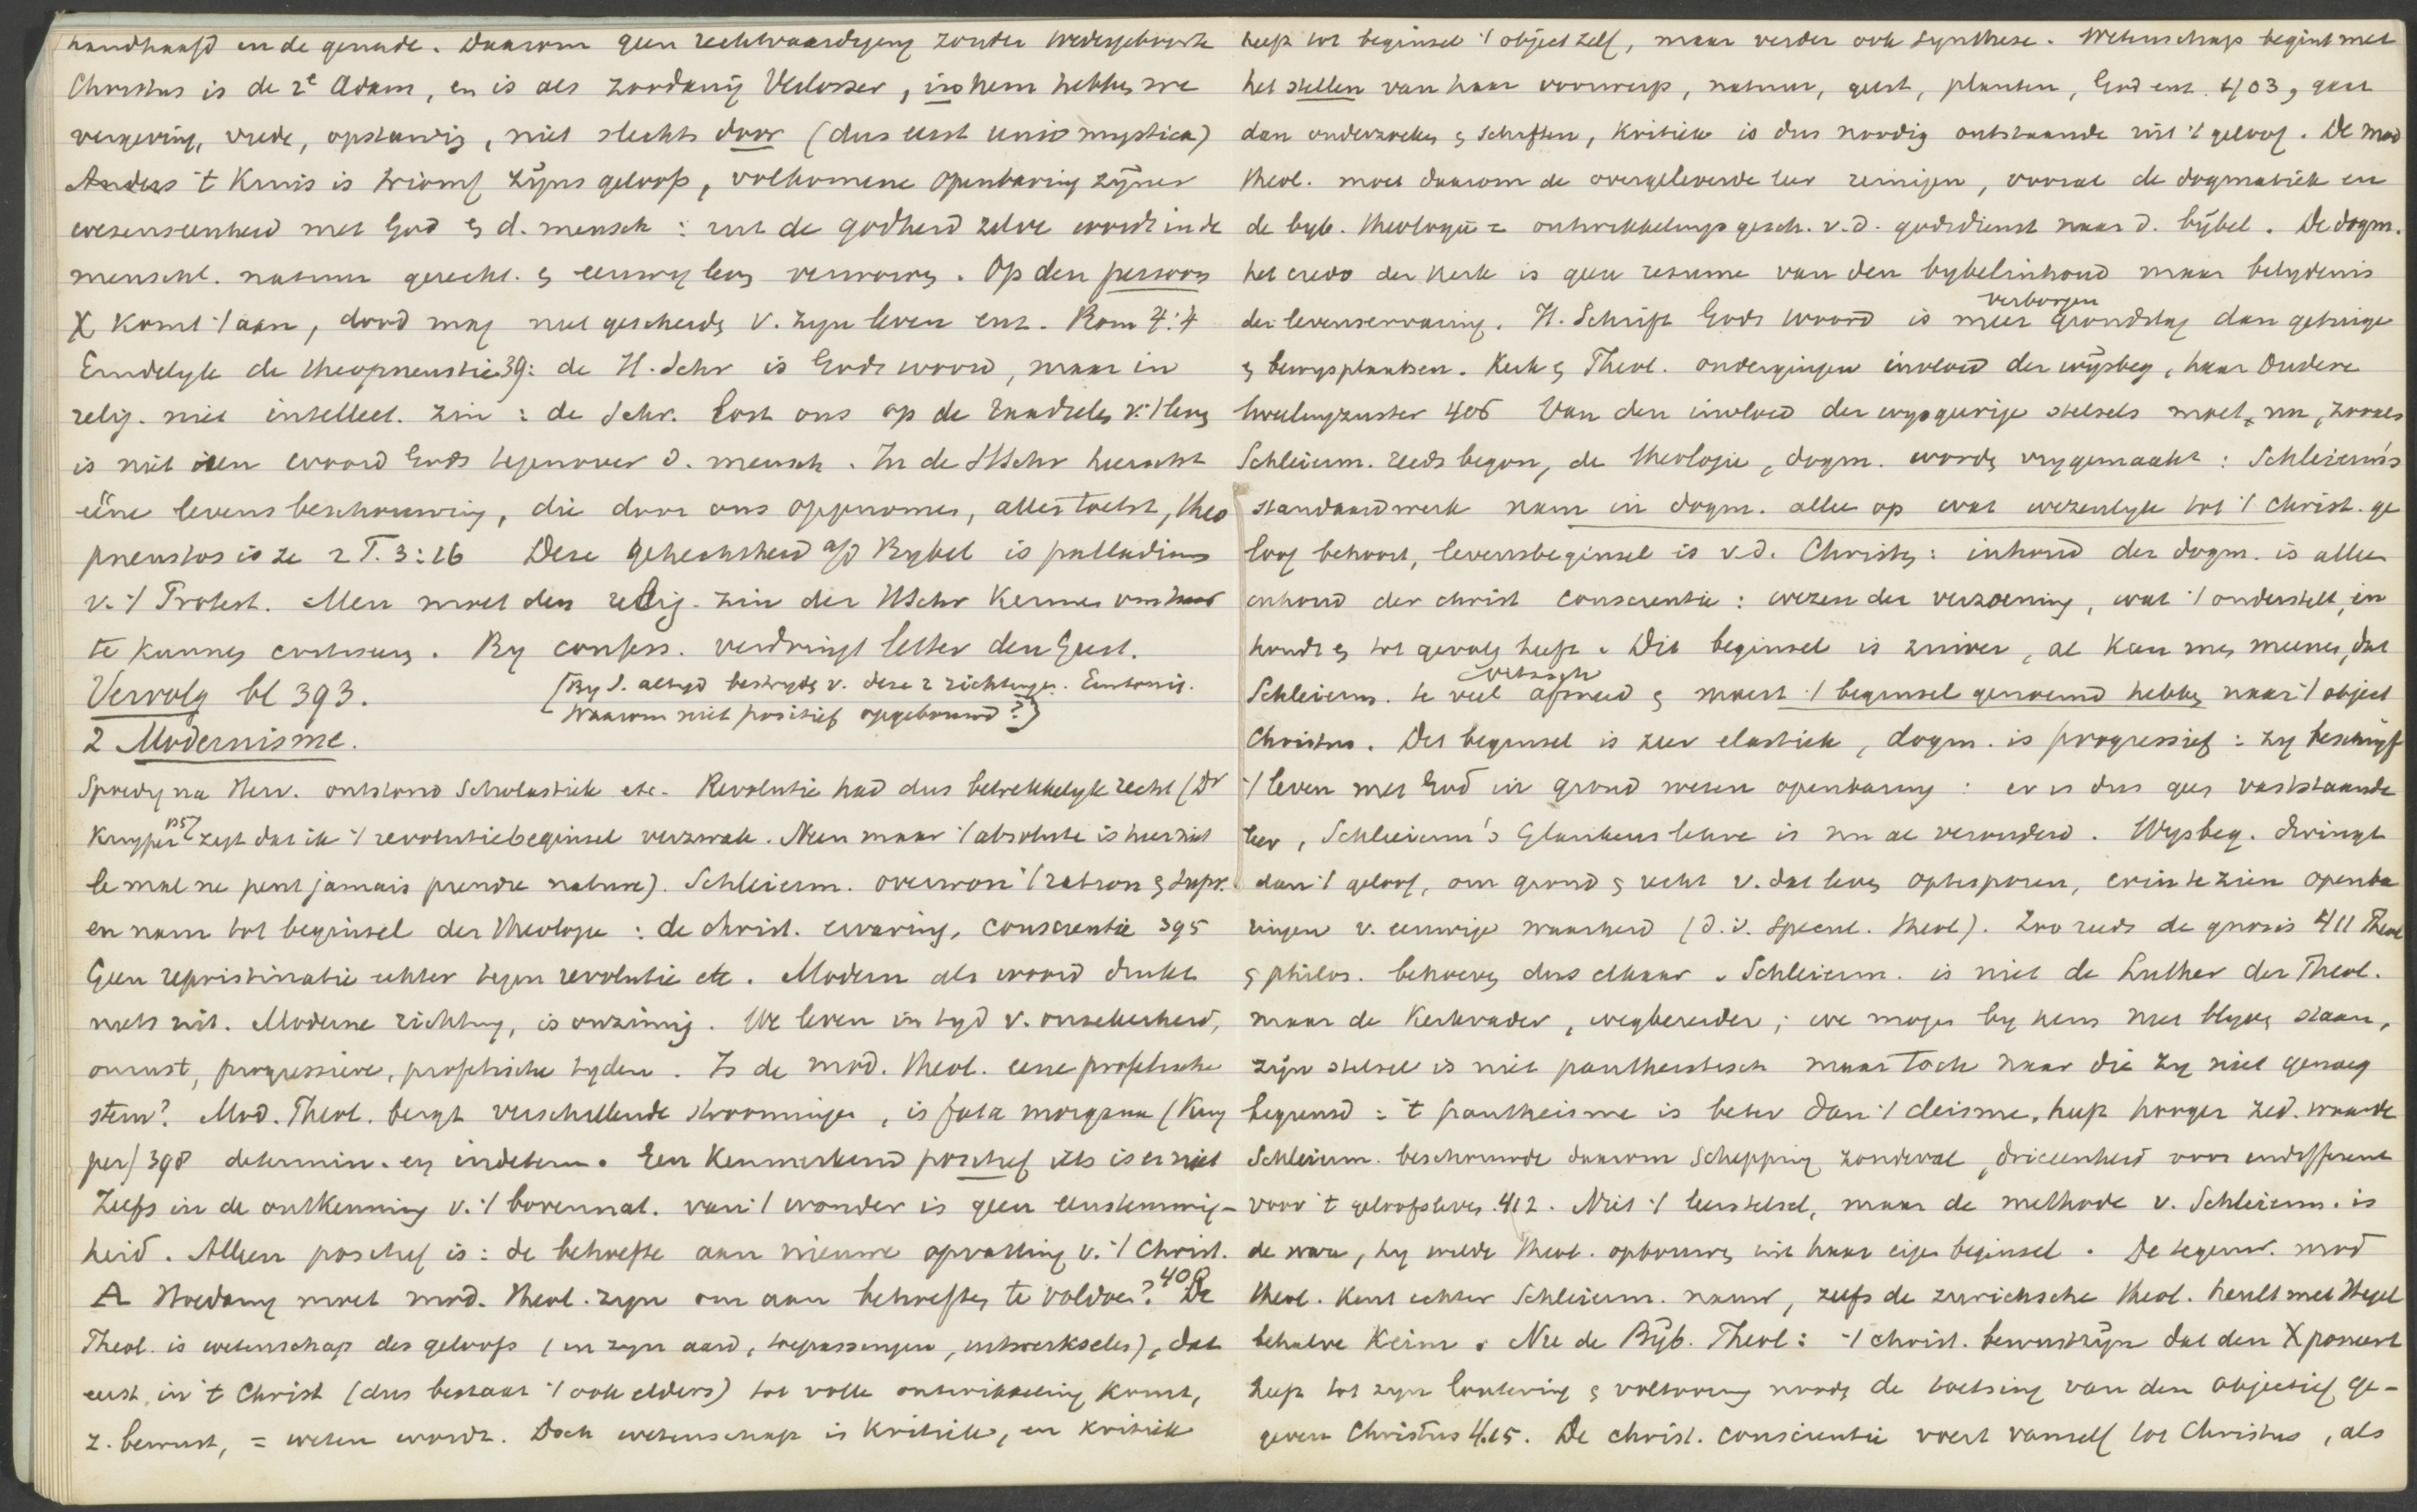 handhaafd en de genade. Daarom geen rechtvaardiging zonder wedergeboorte
Christus is de 2e Adam, en is als zoodanig Verlosser, in hem hebben we
vergeving, vrede, opstanding, niet slechts door (dus eerst unio mystica)
Anders 't Kruis is triomf zijns geloofs, volkomene openbaring zijner
wezenseenheid met God en d. mensch: uit de godheid zelve wordt in de
menschl. natuur gerecht. en eeuwig leven verworven. Op den persoon
X komt 't aan, dood mag niet gescheiden v. zyn leven enz. Rom 4:4
Eindelyk de theopneustie 39: de H. Schr is Gods woord, maar in
relig. niet intellect. zin: de Schr. lost ons op de raadselen v. 't leven
is niet een woord Gods tegenover d. mensch. In de HSchr heerscht
ééne levensbeschouwing, die door ons opgenomen, alles toetst, theo
pneustos is ze 2 T. 3:16 Deze gehechtheid a/d Bybel is palladium
v. 't Protest. Men moet den relig. zin der HSchr kennen om haar
te kunnen critiseren. By confess. verdringt letter den Geest.
Vervolg bl 393. [By S. altyd bestryden v. deze 2 richtingen. Eentonig.
Waarom niet positief opgebouwd?]
2 Modernisme.
Spoedig na Herv. ontstond Scholastiek etc. Revolutie had dus betrekkelyk recht (Dr
Kuyper zegt dat ik 't revolutiebeginsel verzwak. Neen maar 't absolute is hier niet
le mal ne peut jamais prendre nature). Schleierm. overwon 't ration en supr.
en nam tot beginsel der theologie: de christ. ervaring, conscientie 395
Geen repristinatie echter tegen revolutie etc. Modern als woord drukt
niets uit. Moderne richting, is onzinnig. We leven in tyd v. onzekerheid,
onrust, progressieve, profetische tyden. Is de mod. theol. eene profetische
stem? Mod. Theol. bergt verschillende stroomingen, is fata morgana (Kuy
per) 398 determin. en indeterm. Een kenmerkend positief iets is er niet
Zelfs in de ontkenning v. 't bovennat. van 't wonder is geen eenstemmig-
heid. Alleen positief is: de behoefte aan nieuwe opvatting v. 't Christ.
A Hoedanig moet mod. theol. zyn om aan behoeften te voldoen? 400 De
Theol. is wetenschap des geloofs (in zyn aard, toepassingen, uitwerkselen), dat
eerst in 't Christ (dus bestaat 't ook elders) tot volle ontwikkeling komt,
z. bewust, = weten wordt. Doch wetenschap is kritiek, en kritiek
heeft tot beginsel 't object zelf, maar verder ook synthese. Wetenschap begint met
het stellen van haar voorwerp, natuur, geest, planten, God enz. 403, gaat
dan onderzoeken en schiften, kritiek is dus noodig ontstaande uit 't geloof. De mod
theol. moet daarom de overgeleverde leer reinigen, vooral de dogmatiek en
de byb. theologie = ontwikkelingsgesch. v.d. godsdienst naar d. bybel. De dogm.
het credo der kerk is geen resume van den bybelinhoud maar belydenis
der levenservaring. H. Schrift Gods woord is meer verborgen grondslag dan getuige
en bewysplaatsen. Kerk en Theol. ondergingen invloed der wijsbeg, haar oudere
tweelingzuster 406 Van den invloed der wysgeerige stelsels moet nu, zooals
Schleierm. reeds begon, de theologie, dogm. worden vrygemaakt: Schleierm's
standaardwerk nam in dogm. alleen op wat wezenlyk tot 't christ. ge
loof behoort, levensbeginsel is v.d. Christen: inhoud der dogm. is alleen
inhoud der christ conscientie: wezen der verzoening, wat 't onderstelt, in
houdt en tot gevolg heeft. Dit beginsel is zuiver, al kan men meenen, dat
Schleierm. te veel afsneed en moest 't beginsel genoemd hebben naar 't object
Christus. Dit beginsel is zeer elastiek, dogm. is progressief: zy beschryft
't leven met God in grond wezen openbaring: er is dus geen vaststaande
leer, Schleierm's Glaubenslehre is nu al verouderd. Wysbeg. dringt
dan 't geloof, om grond en recht v. dat leven optesporen, erin te zien openba
ringen v. eeuwige waarheid (d.i. specul. theol). Zoo reeds de gnosis 411 Theol
en philos. behoeven dus elkaar. Schleierm. is niet de Luther der Theol.
maar de Kerkvader, wegbereider; we mogen by hem niet blyven staan,
zijn stelsel is niet pantheistisch maar toch naar die zy niet genoeg
begrensd: 't pantheisme is beter dan 't deisme, heeft hooger zed. waarde
Schleierm. beschouwde daarom Schepping zondeval, drieenheid voor indifferent
voor 't geloofsleven. 412. Niet 't leerstelsel, maar de methode v. Schleierm. is
de ware, hy wilde theol. opbouwen uit haar eigen beginsel. De tegenw. mod
theol. kent echter Schleierm. nauw, zelfs de zurichsche theol. heult met Hegel
behalve Keim. Nu de Bijb. Theol: 't christ. bewustzijn dat den X poneert
heeft tot zyn loutering en voltooiing noodig de toetsing van den objectief ge-
geven Christus 415. De christ. conscientie voert vanzelf tot Christus, als